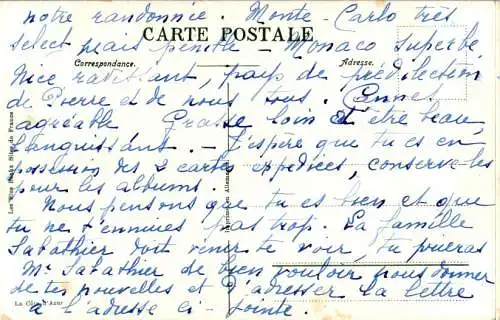 notre randonnée. Monte-Carlo très
select mais pénible - Monaco superbe
CARTE POSTALE
Correspondance.
Adresse.
Nice ravissant, pays de prédilection
de Pierre et de nous tous. Cannes
agréable Grasse loin et être beau,
languissant. - J'espère que tu es en
possession des 2 cartes expédiées, conserve-les
pour les albums.
Nous pensons que tu es bien et que
tu ne t'ennuies pas trop. La famille
Sabathier doit venir te voir, tu prieras
Mr Sabathier de bien vouloir nous donner
de tes nouvelles et d'adresser la lettre
à l'adresse ci-jointe.
La Côte d'Azur
Les plus Sites de France
Imprimé en Allemagne